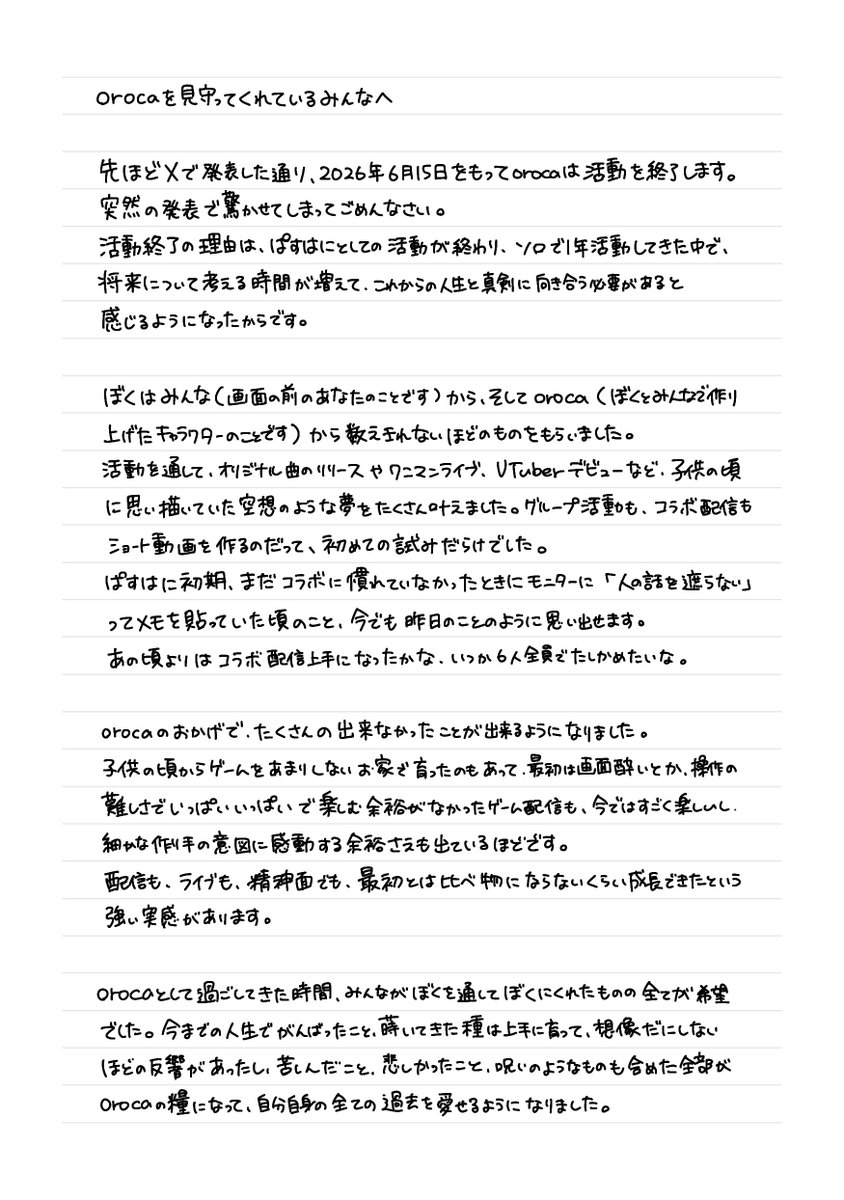 orocaを見守ってくれているみんなへ
先ほどXで発表した通り、2026年6月15日をもってorocaは活動を終了します。
突然の発表で驚かせてしまってごめんなさい。
活動終了の理由は、ぱすはにとしての活動が終わり、ソロで1年活動してきた中で、
将来について考える時間が増えて、これからの人生と真剣に向き合う必要があると
感じるようになったからです。
ぼくはみんな(画面の前のあなたのことです)から、そしてoroca(ぼくとみんなで作り
上げたキャラクターのことです)から数えきれないほどのものをもらいました。
活動を通して、オリジナル曲のリリースやワンマンライブ、VTuberデビューなど、子供の頃
に思い描いていた空想のような夢をたくさん叶えました。グループ活動も、コラボ配信も
ショート動画を作るのだって、初めての試みだらけでした。
ぱすはに初期、まだコラボに慣れていなかったときにモニターに「人の話を遮らない」
ってメモを貼っていた頃のこと、今でも昨日のことのように思い出せます。
あの頃よりはコラボ配信上手になったかな、いつか6人全員でたしかめたいな。
orocaのおかげで、たくさんの出来なかったことが出来るようになりました。
子供の頃からゲームをあまりしないお家で育ったのもあって、最初は画面酔いとか、操作の
難しさでいっぱいいっぱいで楽しむ余裕がなかったゲーム配信も、今ではすごく楽しいし、
細かな作り手の意図に感動する余裕さえも出ているほどです。
配信も、ライブも、精神面でも、最初とは比べ物にならないくらい成長できたという
強い実感があります。
orocaとして過ごしてきた時間、みんながぼくを通してぼくにくれたものの全てが希望
でした。今までの人生でがんばったこと、蒔いてきた種は上手に育って、想像だにしない
ほどの反響があったし、苦しんだこと、悲しかったこと、呪いのようなものも含めた全部が
orocaの糧になって、自分自身の全ての過去を愛せるようになりました。